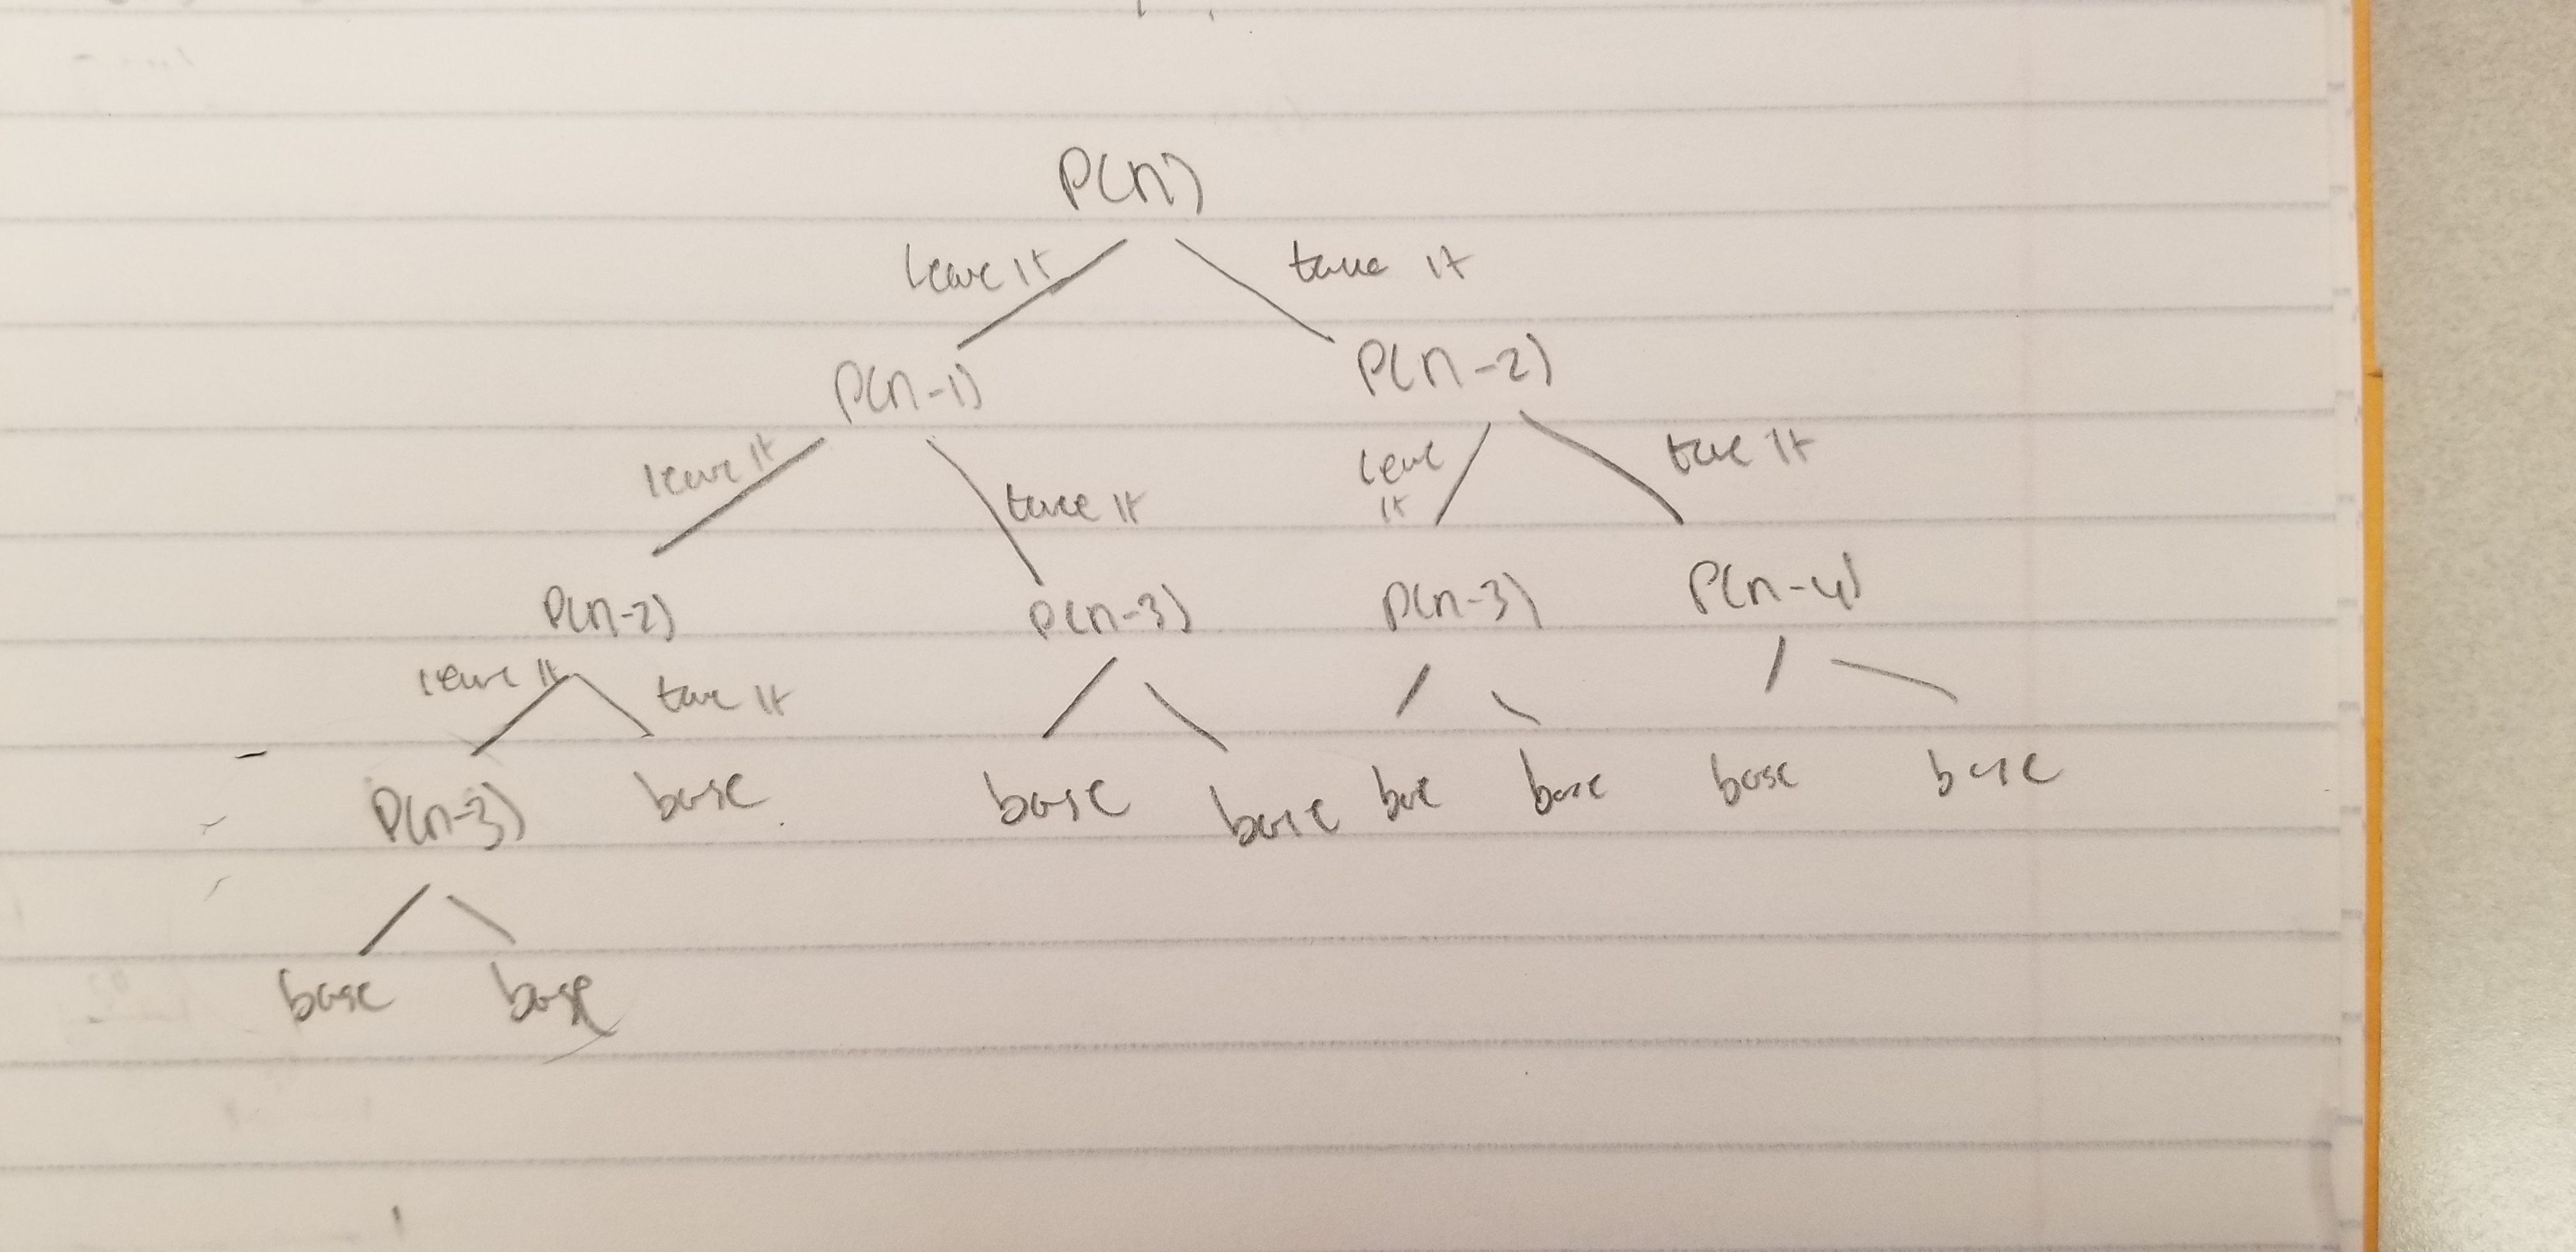 P(n)
leave it take it
P(n-1) P(n-2)
leave it take it leave it take it
P(n-2) P(n-3) P(n-3) P(n-4)
leave it take it
P(n-3) base base base base base base base
base base